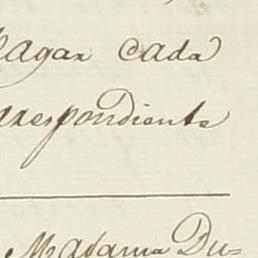 Pagar cada
correspondiente
Madama Du=